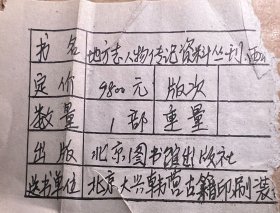 书名 地方志人物传记资料丛刊.西
定价 9800元 版次
数量 1部 重量
出版 北京图书馆出版社
送书单位 北京大兴韩营古籍印刷装